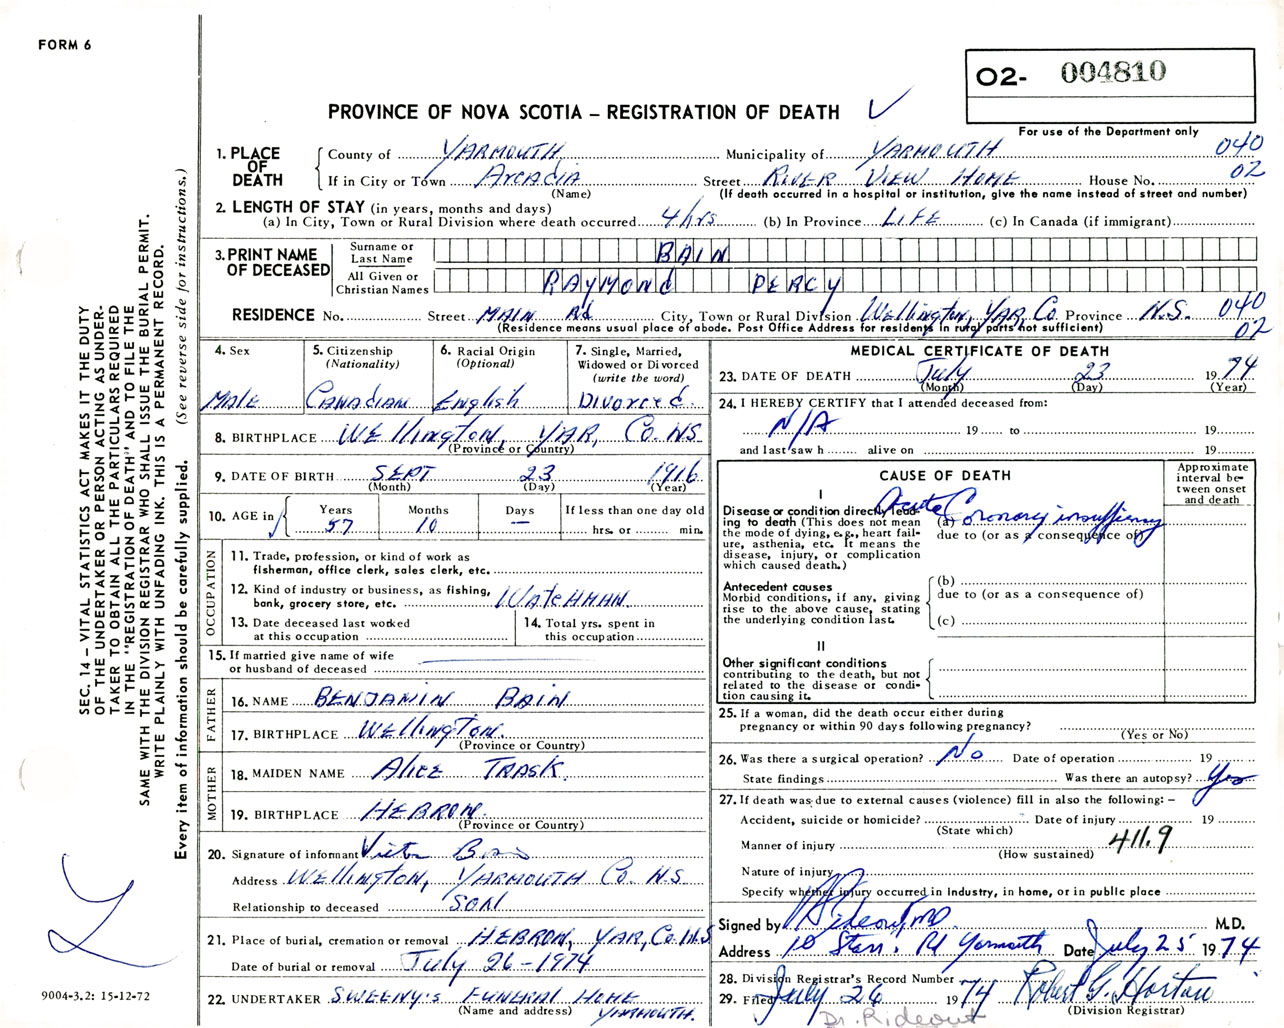 FORM 6
O2- 004810
PROVINCE OF NOVA SCOTIA – REGISTRATION OF DEATH
For use of the Department only
SEC. 14 – VITAL STATISTICS ACT MAKES IT THE DUTY
OF THE UNDERTAKER OR PERSON ACTING AS UNDER-
TAKER TO OBTAIN ALL THE PARTICULARS REQUIRED
IN THE "REGISTRATION OF DEATH" AND TO FILE THE
SAME WITH THE DIVISION REGISTRAR WHO SHALL ISSUE THE BURIAL PERMIT.
WRITE PLAINLY WITH UNFADING INK. THIS IS A PERMANENT RECORD.
Every item of information should be carefully supplied. (See reverse side for instructions.)
1. PLACE OF DEATH
County of YARMOUTH Municipality of YARMOUTH 040
If in City or Town ARCADIA Street RIVER VIEW HOME House No. 02
(Name) (If death occurred in a hospital or institution, give the name instead of street and number)
2. LENGTH OF STAY (in years, months and days)
(a) In City, Town or Rural Division where death occurred 4 hrs (b) In Province LIFE (c) In Canada (if immigrant)
3. PRINT NAME OF DECEASED
Surname or Last Name BAIN
All Given or Christian Names RAYMOND PERCY
RESIDENCE No. Street MAIN Rd City, Town or Rural Division Wellington, YAR, Co. Province N.S. 040
(Residence means usual place of abode. Post Office Address for residents in rural parts not sufficient) 02
4. Sex
Male
5. Citizenship
(Nationality)
Canadian
6. Racial Origin
(Optional)
English
7. Single, Married,
Widowed or Divorced
(write the word)
Divorced.
8. BIRTHPLACE WEllington, YAR, Co. NS
(Province or Country)
9. DATE OF BIRTH SEPT 23 1916
(Month) (Day) (Year)
10. AGE in Years Months Days If less than one day old
57 10 — hrs. or min.
OCCUPATION
11. Trade, profession, or kind of work as
fisherman, office clerk, sales clerk, etc.
12. Kind of industry or business, as fishing,
bank, grocery store, etc. WATCHMAN
13. Date deceased last worked
at this occupation
14. Total yrs. spent in
this occupation
15. If married give name of wife
or husband of deceased
FATHER
16. NAME BENJAMIN BAIN
17. BIRTHPLACE WEllington.
(Province or Country)
MOTHER
18. MAIDEN NAME Alice TRASK.
19. BIRTHPLACE HEBRON.
(Province or Country)
20. Signature of informant Victor Bain
Address WEllington, YARMOUTH Co. N.S.
Relationship to deceased SON
21. Place of burial, cremation or removal HEBRON, YAR, Co. N.S
Date of burial or removal July 26-1974
22. UNDERTAKER SWEENY'S FUNERAL HOME
(Name and address) YARMOUTH.
9004-3.2: 15-12-72
MEDICAL CERTIFICATE OF DEATH
23. DATE OF DEATH July 23 1974
(Month) (Day) (Year)
24. I HEREBY CERTIFY that I attended deceased from:
N/A 19 to 19
and last saw h alive on 19
CAUSE OF DEATH
Approximate
interval be-
tween onset
and death
I
Disease or condition directly lead-
ing to death (This does not mean
the mode of dying, e.g., heart fail-
ure, asthenia, etc. It means the
disease, injury, or complication
which caused death.)
(a) Acute Coronary insufficiency
due to (or as a consequence of)
Antecedent causes
Morbid conditions, if any, giving
rise to the above cause, stating
the underlying condition last.
(b)
due to (or as a consequence of)
(c)
II
Other significant conditions
contributing to the death, but not
related to the disease or condi-
tion causing it.
25. If a woman, did the death occur either during
pregnancy or within 90 days following pregnancy?
(Yes or No)
26. Was there a surgical operation? No Date of operation 19
State findings Was there an autopsy? Yes
27. If death was due to external causes (violence) fill in also the following: –
Accident, suicide or homicide? Date of injury 19
(State which)
Manner of injury 411.9
(How sustained)
Nature of injury
Specify whether injury occurred in Industry, in home, or in public place
Signed by Rideout, MD M.D.
Address 10 Starrs Rd Yarmouth Date July 25 1974
28. Division Registrar's Record Number
29. Filed July 26 1974 Robert G. Horton
(Division Registrar)
Dr. Rideout